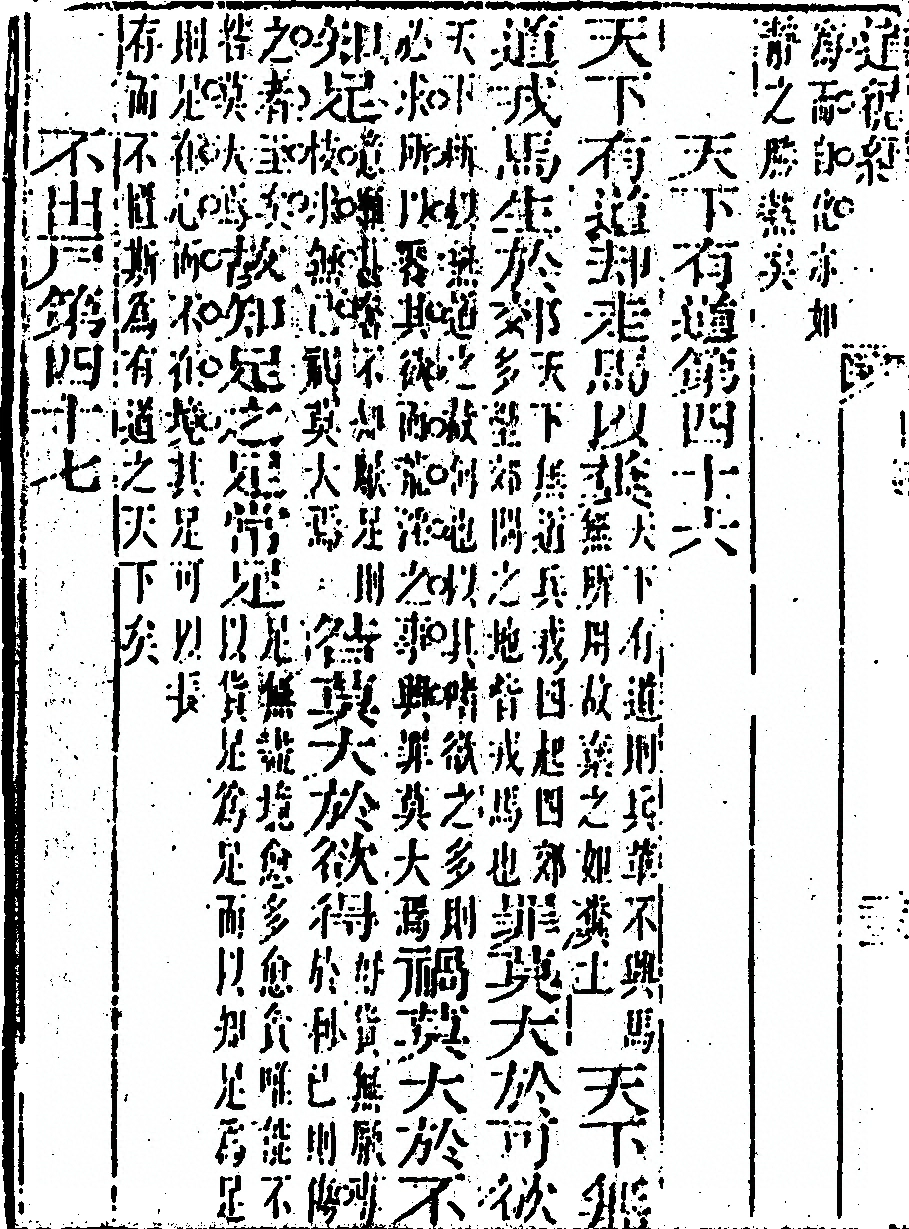 道德經
為而自化亦如
靜之勝熱矣
天下有道第四十六
天下有道却走馬以糞
天下有道則兵革不興馬
無所用故棄之如糞土
天下無
道戎馬生於郊
天下無道兵戎四起四郊
多壘郊閒之地皆戎馬也
罪莫大於可欲
天下所以無道之故何也以其嗜欲之多則
必求所以其欲而荒淫之事興罪莫大焉
禍莫大於不
知足
不知厭足則
求無已禍莫大焉
咎莫大於欲得
好貨無厭專
於利己則傷
之者至矣
咎莫大焉
故知足之足常足
足無盡境愈多愈貪唯能不
以貨足為足而以知足為足
則足在心而不在境其足可以長
有而不斯為有道之天下矣
不出戶第四十七